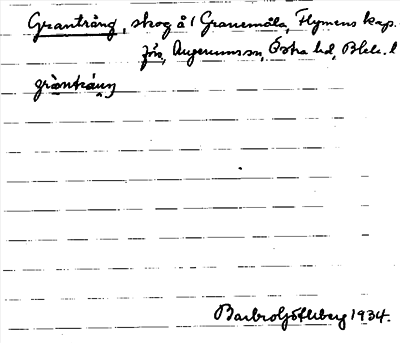 Grantrång, skog å 1 Granemåla, Flymens kap.
förs, Augerums sn, Östra hd, Blek. l
Barbro Götlberg 1934.